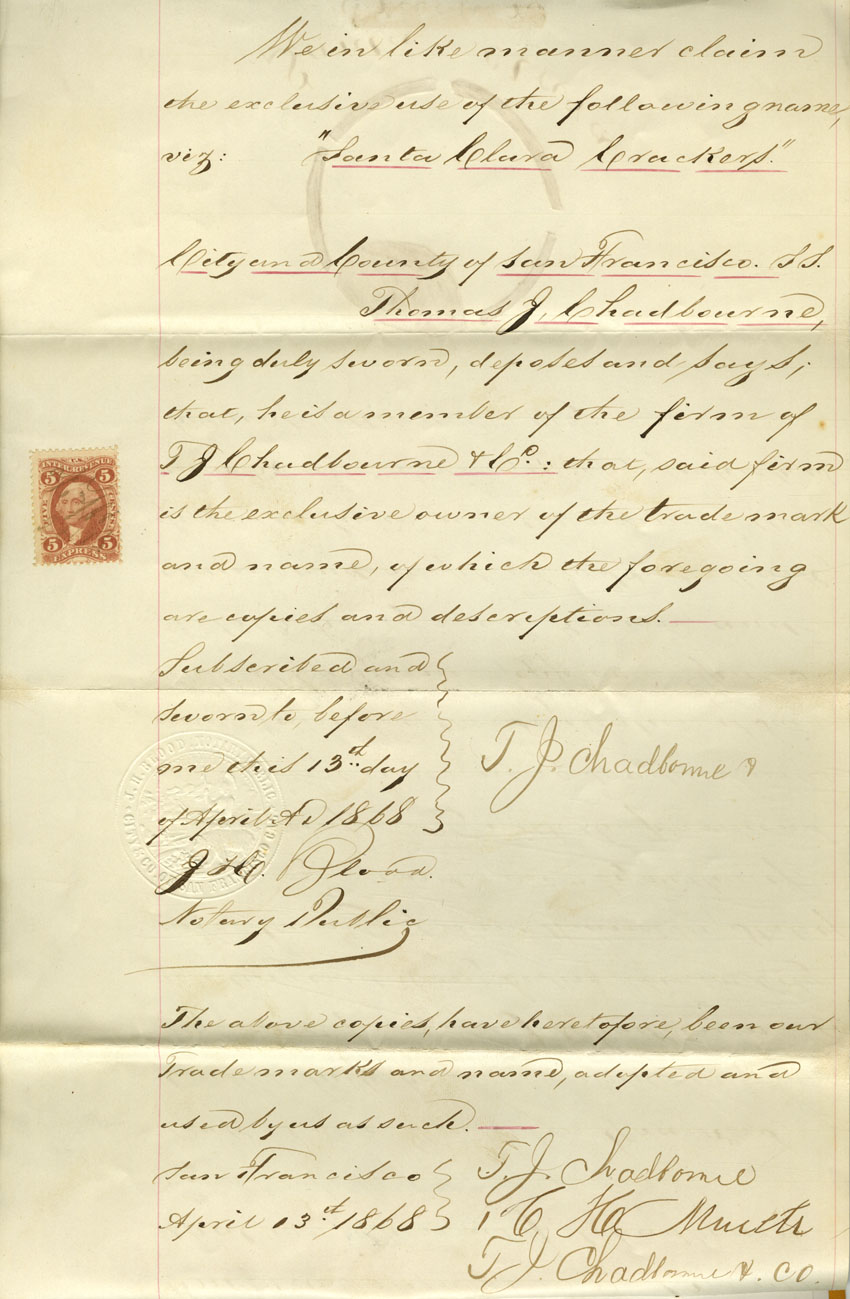 We in like manner claim
the exclusive use of the following name,
viz: "Santa Clara Crackers."
City and County of San Francisco. S S.
Thomas J, Chadbourne,
being duly sworn, deposes and says;
that, he is a member of the firm of
T J Chadbourne & Co.: that, said firm
is the exclusive owner of the trade mark
and name, of which the foregoing
are copies and descriptions.
U.S. INTER. REVENUE
5 5
FIVE CENTS
5 5
EXPRESS
Subscribed and
sworn to, before
me this 13th day
of April AD 1868
T. J. Chadborne &
J. H. BLOOD NOTARY PUBLIC
CITY & CO. OF SAN FRANCISCO
J H. Blood.
Notary Public
The above copies, have heretofore, been our
Trade marks and name, adopted and
used by us as such.
San Francisco
April 13th 1868
T. J. Chadborne
H
T J. Chadborne &. Co.